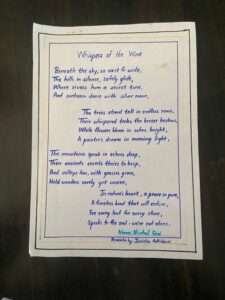 Whispers of the Wind
Beneath the sky, so vast & wide,
The hills in silence, safely glide,
Where rivers hum a secret tune,
And cartoons dance with silver moon,
The trees stand tall in endless rows,
Their whispered tales the breeze bestows,
While flowers bloom in colors bright,
A painter's dream in morning light,
The mountains speak in echoes deep,
Their ancient secrets theirs to keep,
And valleys low, with grasses green,
Hold wonders rarely yet unseen,
In nature's heart, a peace so pure,
A timeless bond that will endure,
See every leaf for every stone,
Speaks to the soul - we're not alone.
Name:
Rewrite by :